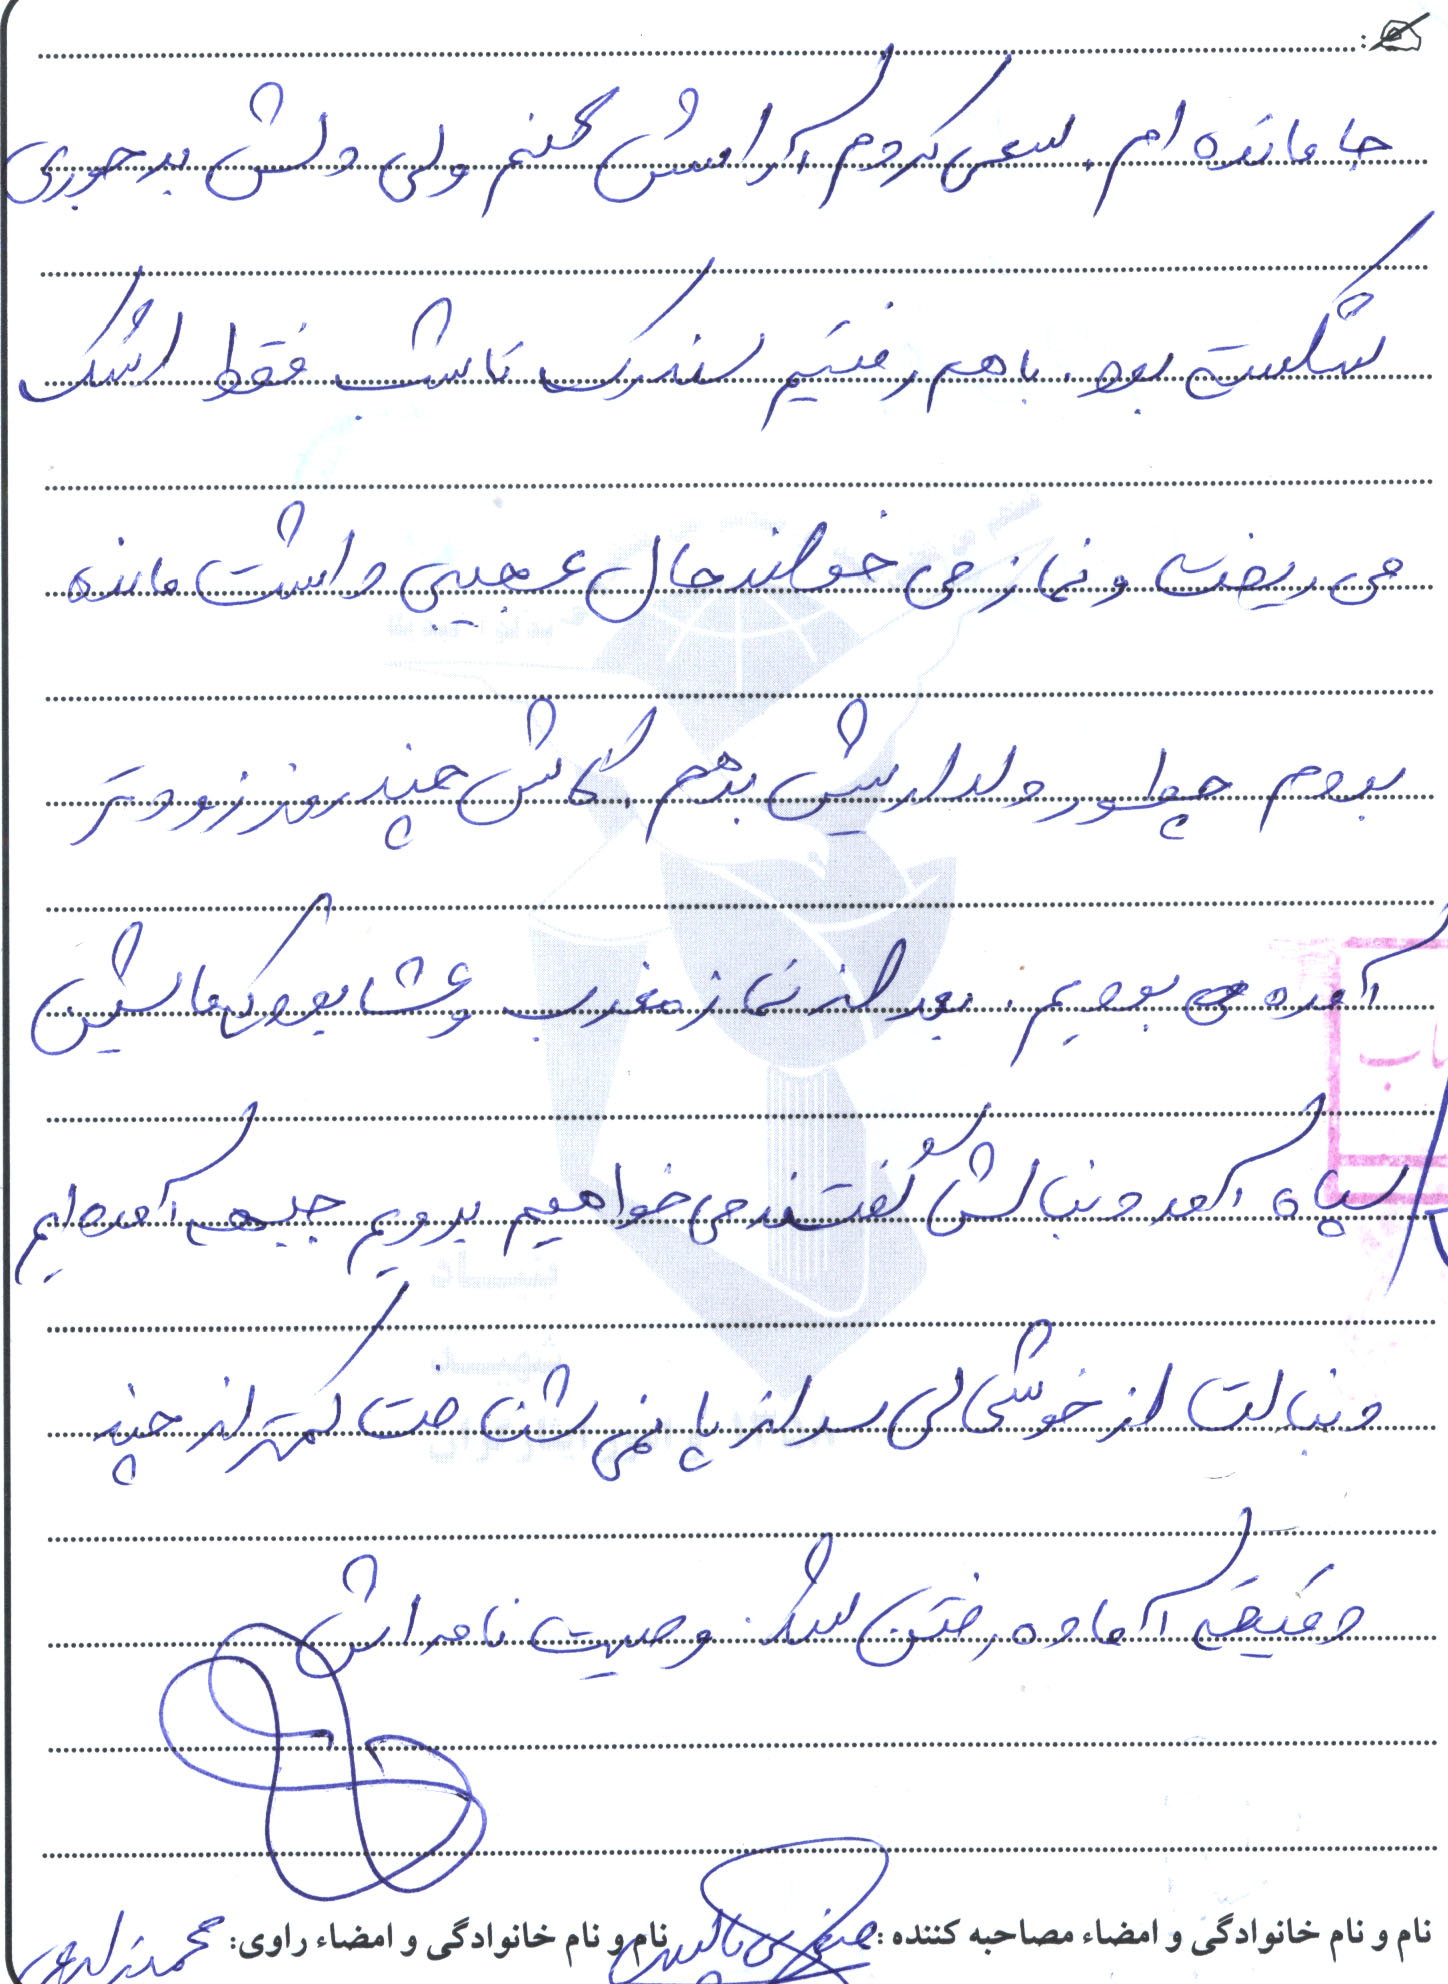 جا مانده ام. سعی کردم آرامش کنم ولی دلش بدجوری
شکسته بود. باهم رفتیم سنگر تا شب فقط اشک
می ریخت و نماز می خواند حال عجیبی داشت مانده
بودم چطور دلداریش بدهم. کاش چند روز زودتر
آمده بودیم. بعد از نماز مغرب و عشا بود که ماشین
سپاه آمد دنبالش گفتند می خواهیم برویم جبهه آمده ایم
دنبالت از خوشحالی سر از پا نمی شناخت کمتر از چند
دقیقه آماده رفتن شد. وصیت نامه اش
نام و نام خانوادگی و امضاء مصاحبه کننده :
نام و نام خانوادگی و امضاء راوی: محمد